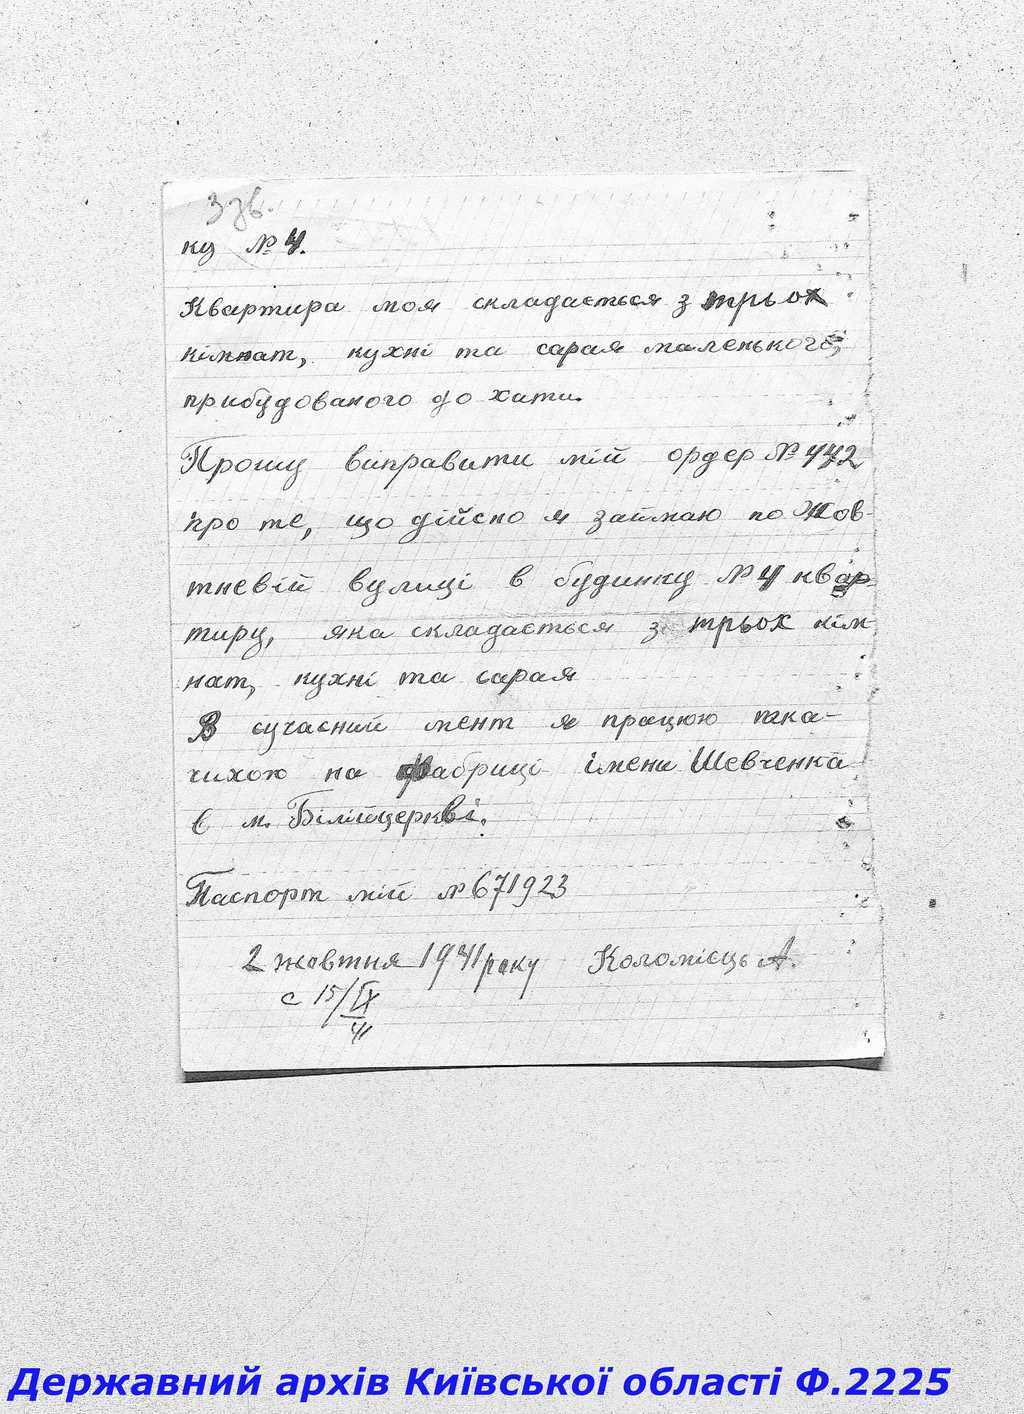 376.
ку № 4.
Квартира моя складається з трьох
кімнат, кухні та сарая маленького,
прибудованого до хати.
Прошу виправити мій ордер № 442
про те, що дійсно я займаю по Жов-
тневій вулиці в будинку № 4 квар-
тиру, яка складається з трьох кім
нат, кухні та сарая
В сучасний мент я працюю тка-
чихою на фабриці імени Шевченка
є м. Білійцеркві.
Паспорт мій № 671923
2 жовтня 1941 року Коломієць А.
с 15/IX
41
Державний архів Київської області Ф.2225